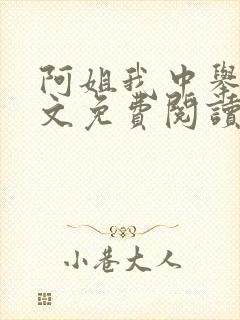 阿姐我中舉
文免費閱讀
小巷大人